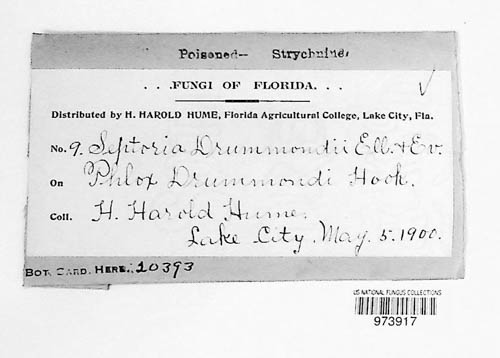 Poisoned— Strychnine.
. . .FUNGI OF FLORIDA. . .
Distributed by H. HAROLD HUME, Florida Agricultural College, Lake City, Fla.
No. 9. Septoria Drummondii Ell. + Ev.
On Phlox Drummondi Hook.
Coll. H. Harold Hume.
Lake City. May. 5. 1900.
BOT. CARD. HERB. 20393
US NATIONAL FUNGUS COLLECTIONS
973917